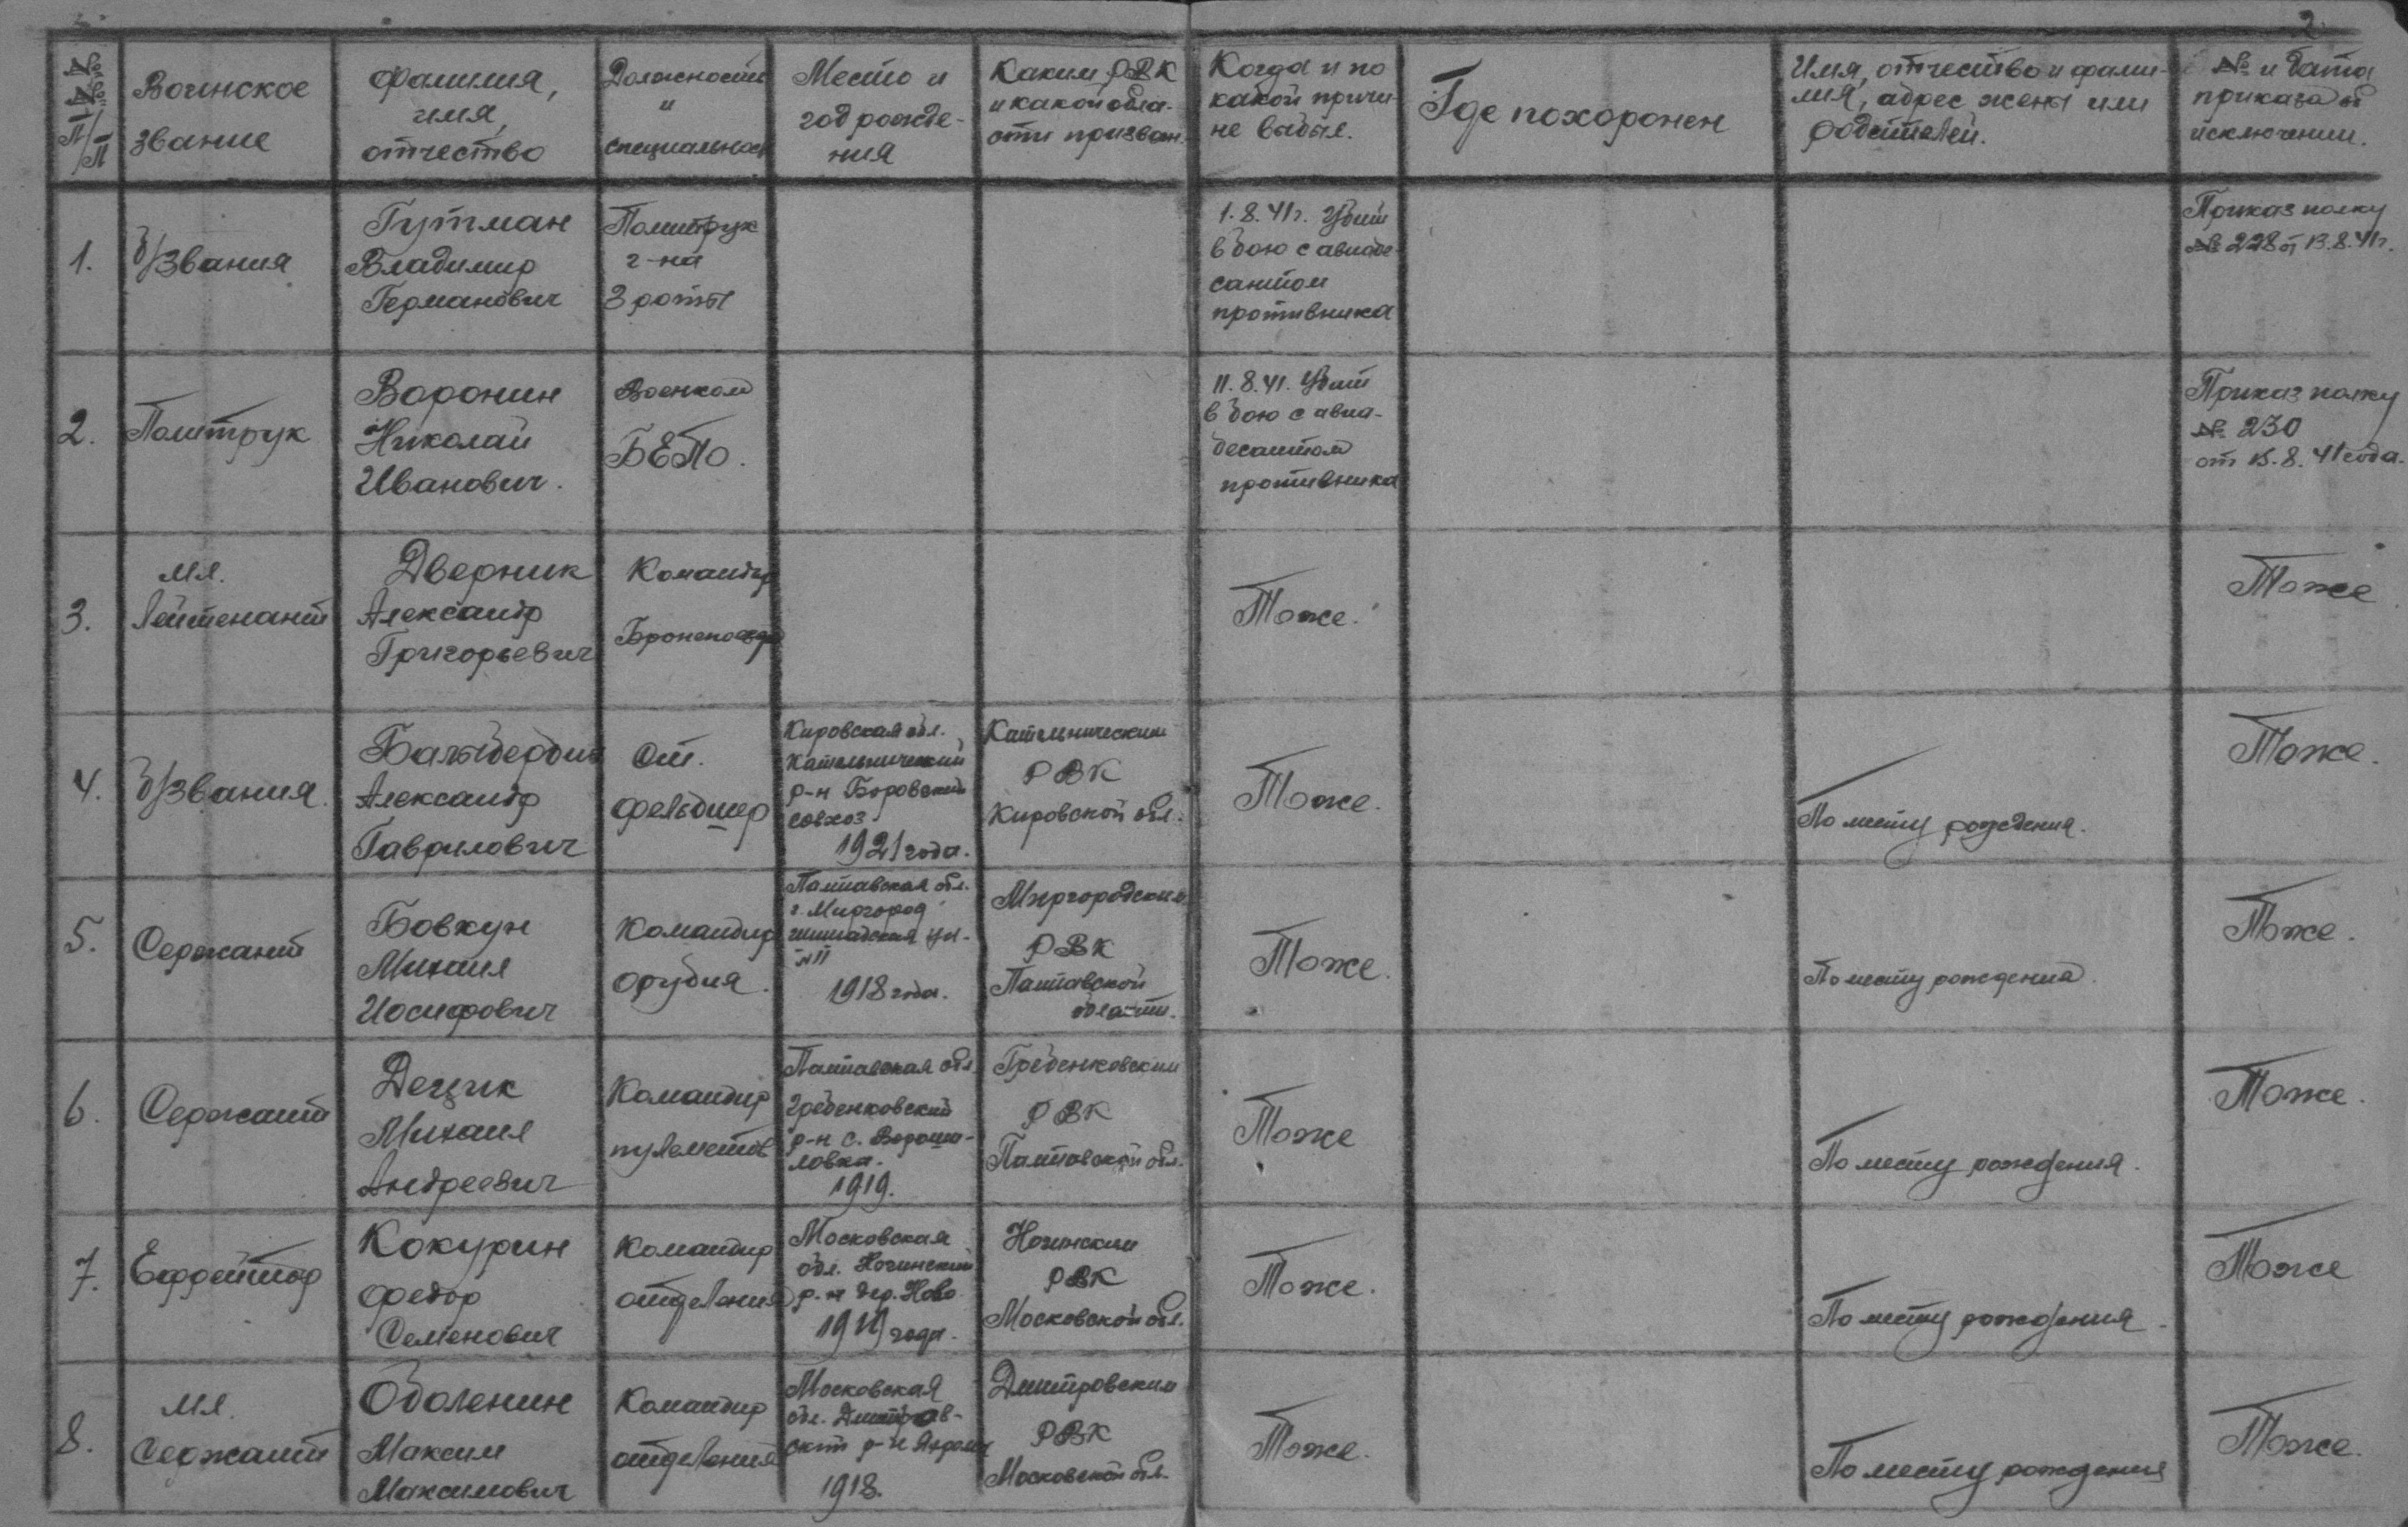 2.
№№ п/п
Воинское
звание
Фамилия,
имя,
отчество
Должность
и
специальность
Место и
год рожде-
ния
Каким РВК
и какой обла-
сти призван.
Когда и по
какой причи-
не выбыл.
Где похоронен
Имя, отчество и фами-
лия, адрес жены или
родителей.
№ и дата
приказа об
исключении.
1.
б/звания
Гутман
Владимир
Германович
Политрук
г-на
3 роты
1.8.41г. Убит
в бою с авиаде-
сантом
противника
Приказ полку
№ 228 от 13.8.41г.
2.
Политрук
Воронин
Николай
Иванович.
Военком
БЕПО.
11.8.41. Убит
в бою с авиа-
десантом
противника
Приказ полку
№ 230
от 15.8.41 года.
3.
Мл.
Лейтенант
Дверник
Александр
Григорьевич
Командир
Бронепоезда
Тоже.
Тоже.
4.
б/звания.
Балыбердин
Александр
Гаврилович
Ст.
фельдшер
Кировская обл.
Кательнический
р-н Боровский
совхоз
1921 года.
Кательническим
РВК
Кировской обл.
Тоже.
По месту рождения.
Тоже.
5.
Сержант
Бовкун
Михаил
Иосифович
Командир
орудия.
Палтавская обл.
г. Миргород
ул.
№11
1918 года.
Миргородским
РВК
Палтавской
области.
Тоже.
По месту рождения.
Тоже.
6.
Сержант
Децик
Михаил
Андреевич
Командир
пулеметов
Палтавская обл.
Гребенковский
р-н с. Вороши-
ловка.
1919.
Гребенковским
РВК
Палтавской обл.
Тоже
По месту рождения.
Тоже.
7.
Ефрейтор
Кокурин
Федор
Семенович
Командир
отделения
Московская
обл. Ногинский
р-н дер. Ново
1919 года.
Ногинским
РВК
Московской обл.
Тоже.
По месту рождения.
Тоже
8.
Мл.
Сержант
Оболенин
Максим
Максимович
Командир
отделения
Московская
обл. Дмитров-
ский р-н
1918.
Дмитровским
РВК
Московской обл.
Тоже.
По месту рождения
Тоже.